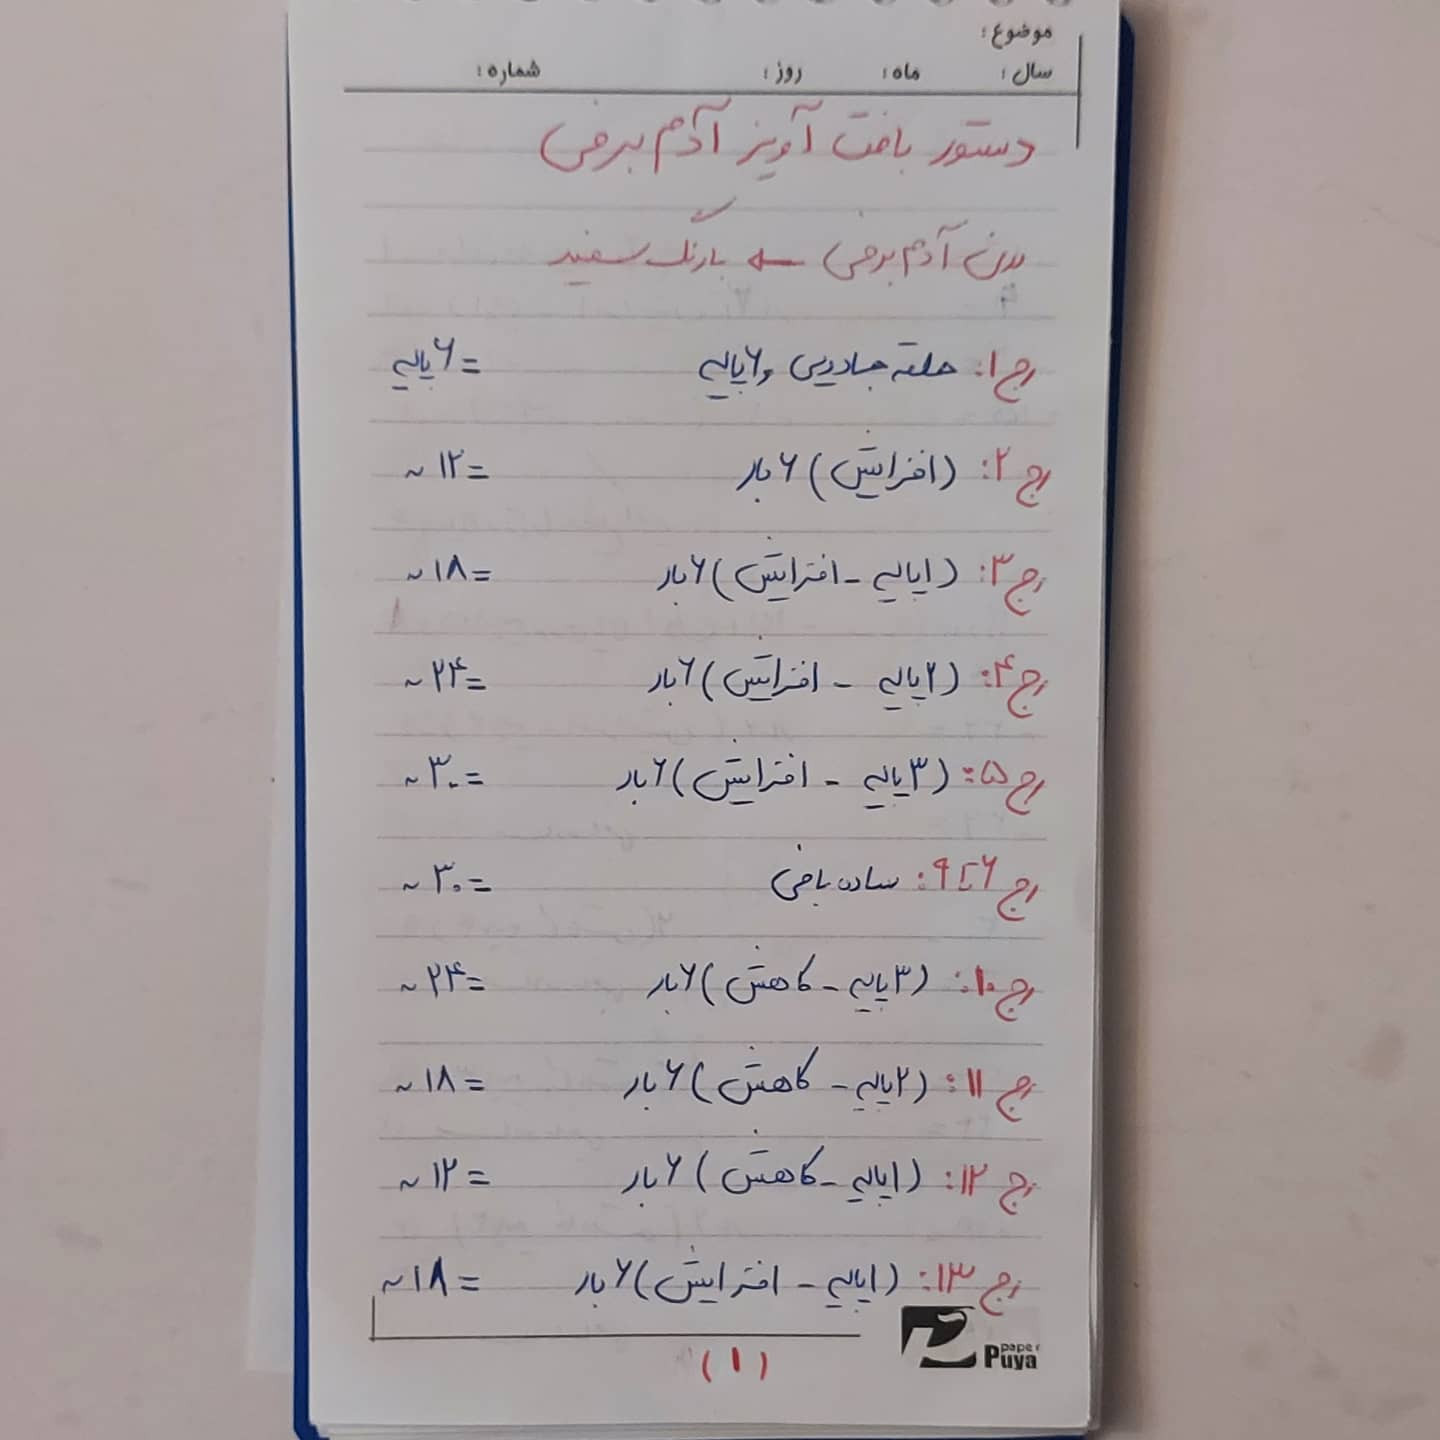 موضوع:
سال: ماه: روز: شماره:
دستور بافت آویز آدم برفی
بدن آدم برفی ← با رنگ سفید
رج ۱: حلقه جادویی و ۶ پایه = ۶ پایه
رج ۲: (افزایش) ۶ بار = ۱۲ ~
رج ۳: (۱ پایه - افزایش) ۶ بار = ۱۸ ~
رج ۴: (۲ پایه - افزایش) ۶ بار = ۲۴ ~
رج ۵: (۳ پایه - افزایش) ۶ بار = ۳۰ ~
رج ۶ تا ۹: ساده بافی = ۳۰ ~
رج ۱۰: (۳ پایه - کاهش) ۶ بار = ۲۴ ~
رج ۱۱: (۲ پایه - کاهش) ۶ بار = ۱۸ ~
رج ۱۲: (۱ پایه - کاهش) ۶ بار = ۱۲ ~
رج ۱۳: (۱ پایه - افزایش) ۶ بار = ۱۸ ~
paper
Puya
(۱)